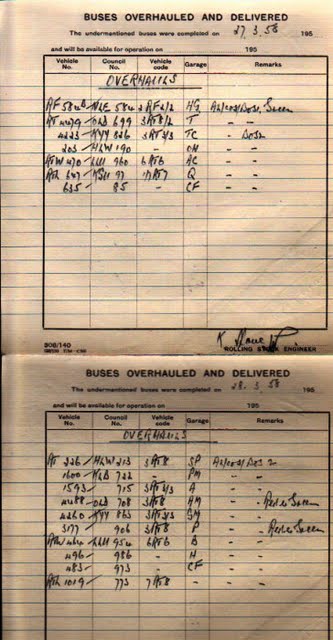 BUSES OVERHAULED AND DELIVERED
The undermentioned buses were completed on 27. 3. 58 195
and will be available for operation on 195
Vehicle No. Council No. Vehicle code Garage Remarks
OVERHAULS
584 HG
RT 4479 OLD 699 3RT8/2 T - -
4223 KYY 326 3RT3/3 TC - DOS2
203 HLW 190 - ON - -
RTW 470 LLU 960 6RT6 AC - -
RTL 627 KGU 97 7RT7 Q - -
635 85 - CF - -
208/140
ROLLING STOCK ENGINEER
BUSES OVERHAULED AND DELIVERED
The undermentioned buses were completed on 28. 3. 58 195
and will be available for operation on 195
Vehicle No. Council No. Vehicle code Garage Remarks
OVERHAULS
RT 226 HLW 213 3RT8 SP
1600 KLB 722 - PM - -
1593 715 3RT3/3 A - -
4488 OLD 708 3RT8 HM - -
4260 KYY 863 3RT3/3 SM - -
3177 906 3RT8 P - -
RTW 464 LLU 954 6RT6 B - -
496 986 - H - -
483 973 - CF - -
RTL 1019 773 7RT8 - - -